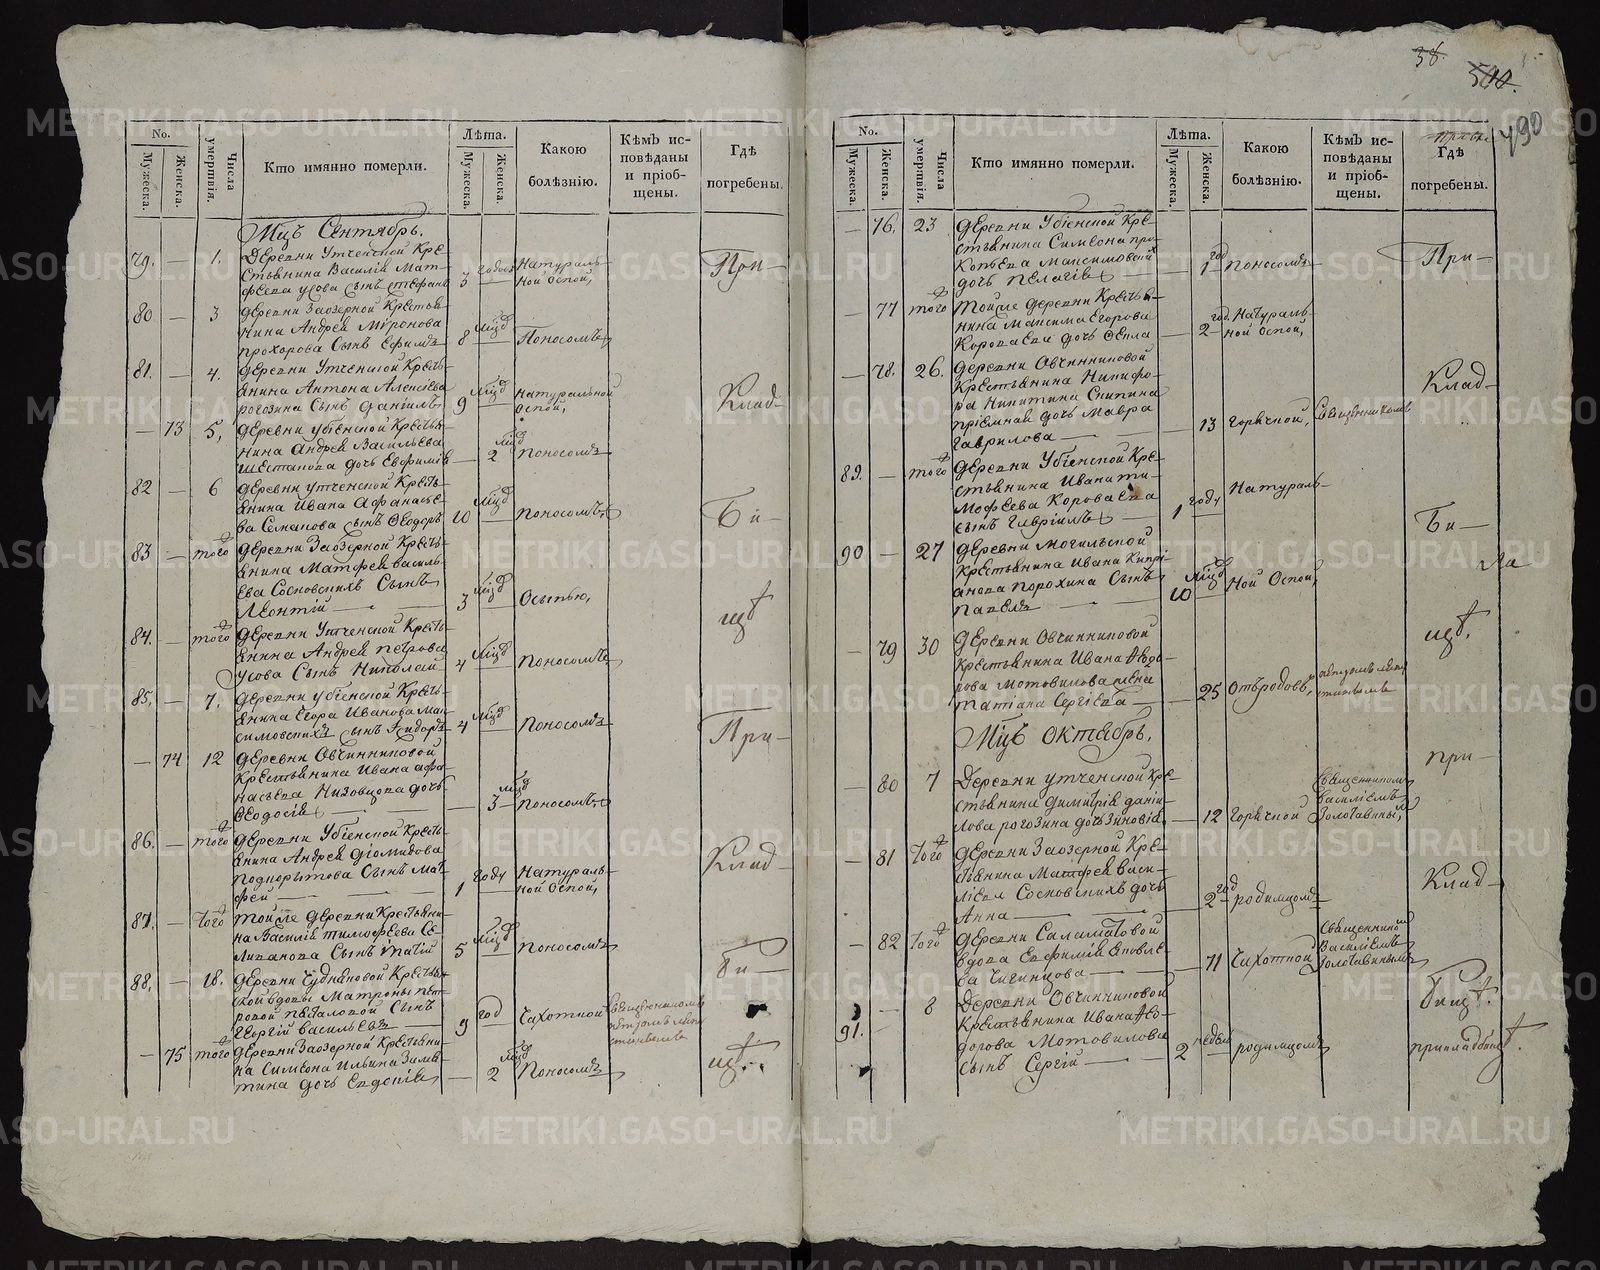 38.
500.
490
No.
Мужеска.
Женска.
Числа умертвія.
Кто имянно померли.
Лѣта.
Мужеска.
Женска.
Какою болѣзнію.
Кѣмъ исповѣданы и пріобщены.
Гдѣ погребены.
Мцъ Сентябрь.
79. — 1. Деревни Утченской Кре-
стьянина Василія Мат-
феева Усова сынъ Стефанъ
3 годовъ
Натураль-
ной Оспой,
При-
80 — 3 деревни Заозерной Крестья-
нина Андрея Миронова
Прохорова Сынъ Ефимъ
8 Мцъ
Поносомъ
81. — 4. деревни Утченской Кресть-
янина Антона Алексіева
рогозина Сынъ Даніилъ
9 Мцъ
натуральной
Оспой,
Клад-
— 73 5, деревни Убіенской Крестья-
нина Андрея Васильева
Шестакова дочь Евфимія
2 Мцъ
Поносомъ
82 — 6 деревни Утченской Кресть-
янина Ивана Афанасье-
ва Семакова Сынъ Ѳеодоръ
10 Мцъ
Поносомъ
Би-
83 — того деревни Заозерной Кресть-
янина Матфея Василь-
ева Сосновскихъ Сынъ
Леонтій
3 Мцъ
Осыпью,
щѣ
84. — того деревни Утченской Кресть-
янина Андрея Петрова
Усова Сынъ Николай
4 Мцъ
Поносомъ
85. — 7. деревни Убіенской Кресть-
янина Егора Иванова Мак-
симовскихъ Сынъ Исидоръ
4 Мцъ
Поносомъ
При-
— 74 12 деревни Овчинниковой
Крестьянина Ивана Афа-
насьева Низовцова дочь
Ѳеодосія
3 Мцъ
Поносомъ
86. — того деревни Убіенской Кресть-
янина Андрея Діомидова
Подкорытова Сынъ Мат-
фей
1 году
Натураль-
ной Оспой,
Клад-
87. — того той же деревни Крестьяни-
на Василія Тимофеева Се-
ливанова Сынъ Ипатій
5 Мцъ
Поносомъ
би-
88. — 18. деревни Чудиновой Крестьян-
ской вдовы Матроны Пет-
ровой Сынъ
Георгій Васильевъ
9 год
Чахоткой
Священникомъ
щѣ.
— 75 того деревни Заозерной Крестьяни-
на Симеона Ильина Зима-
тина дочь Евдокія
2 Мцъ
Поносомъ
No.
Мужеска.
Женска.
Числа умертвія.
Кто имянно померли.
Лѣта.
Мужеска.
Женска.
Какою болѣзнію.
Кѣмъ исповѣданы и пріобщены.
Гдѣ погребены.
— 76. 23 деревни Убіенской Кре-
стьянина Симеона Про-
копьева Максимовскихъ
дочь Пелагія
1 год
Поносомъ
При-
— 77 того той же деревни Крестья-
нина Максима Егорова
Короваева дочь Ѳекла
2 год.
Натураль-
ной Оспой,
— 78. 26. деревни Овчинниковой
Крестьянина Никифо-
ра Никитина Скипина
пріемная дочь Мавра
Гаврилова
13
Горячкой,
Священникомъ
Клад-
89. — того деревни Убіенской Кре-
стьянина Ивана Ти-
мофеева Короваева
сынъ Гавріилъ
1 году
Натураль-
Би-
90 — 27 деревни Могильской
Крестьянина Ивана Кипрі-
анова Порохина Сынъ
Павелъ
10 Мцъ
Ной Оспой,
ла
— 79 30 деревни Овчинниковой
Крестьянина Ивана Ѳедо-
това Мотовилова жена
Татіана Сергіева
25
Отъ родовъ,
щѣ.
Мцъ Октябрь.
— 80 7 Деревни Утченской Кре-
стьянина Димитрія Дании-
лова рогозина дочь Зиновія
12
Горячкой
Священникомъ
Василіемъ
Золотавинымъ,
при-
— 81 того деревни Заозерной Кре-
стьянина Матфея Васи-
лієва Сосновскихъ дочь
Анна
2 год
родимцомъ
Клад-
— 82 того деревни Саламатовой
вдова Евфимія Яковле-
ва Чигинцова
71
Чахоткой
Священнико
Василіемъ
Золотавинымъ
Бищѣ.
91. — 8 Деревни Овчинниковой
Крестьянина Ивана Ѳео-
дотова Мотовилова
сынъ Сергій
2 недели
родимцомъ
прикладбищѣ.
METRIKI.GASO-URAL.RU